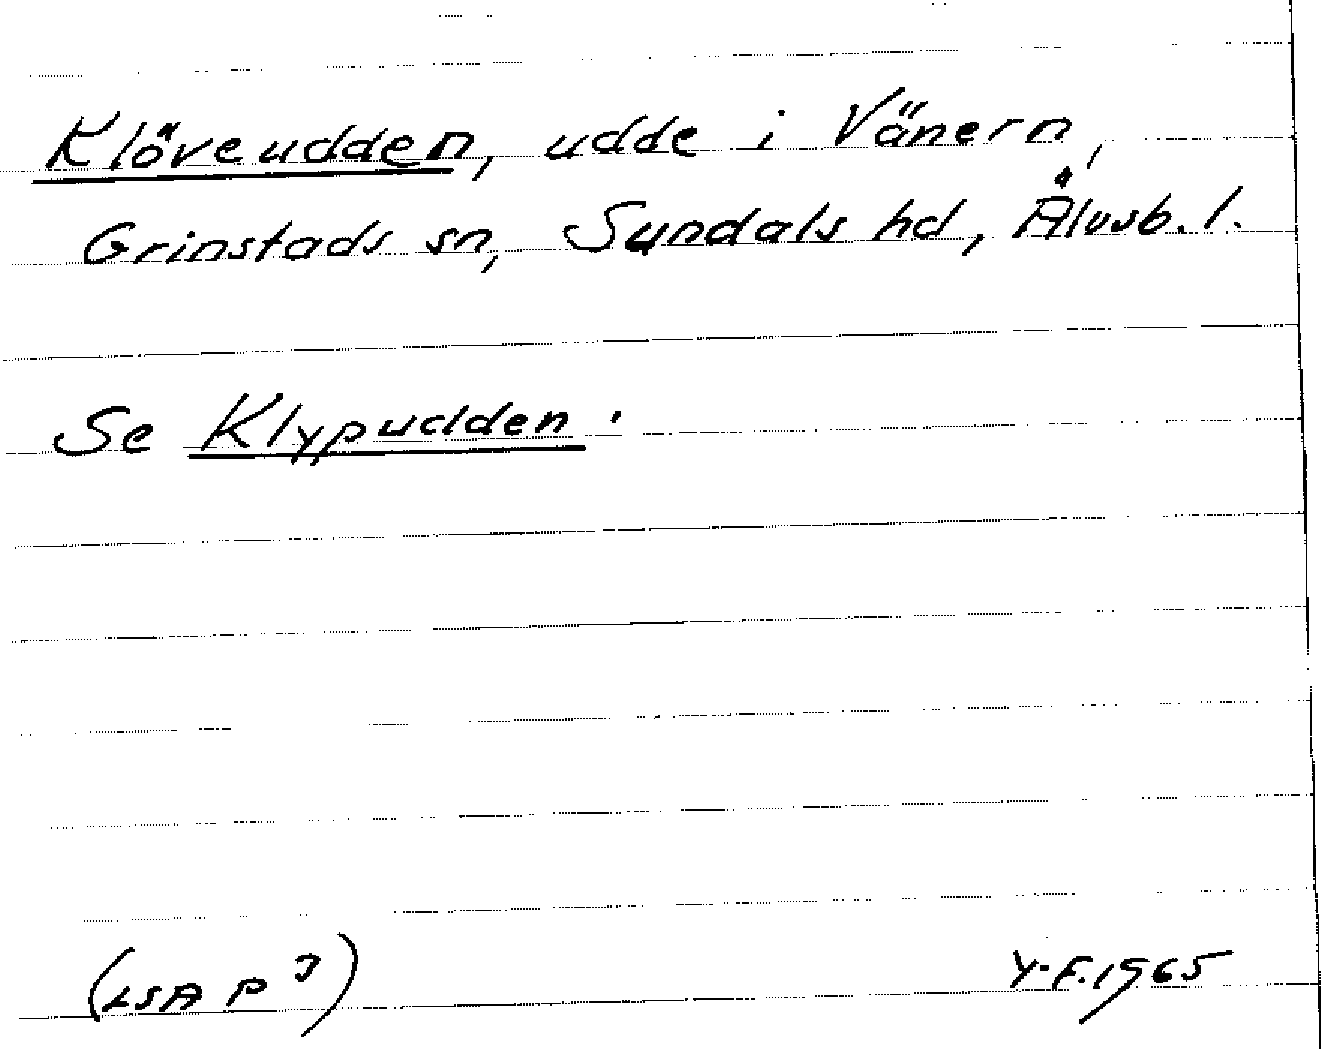 Klöveudden, udde i Vänern,
Grinstads sn, Sundals hd, Älvsb. l.
Se Klypudden.
(LSA P )
Y-F. 1965